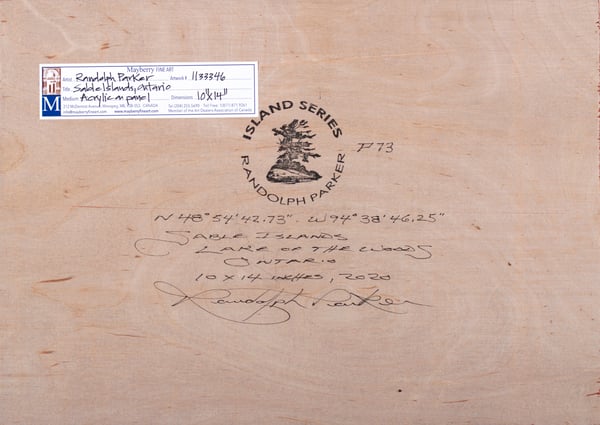 Mayberry FINE ART
Artist: Randolph Parker Artwork # 1133346
Title: Sable Islands, Ontario
Medium: Acrylic on panel Dimensions: 10"x14"
212 McDermot Avenue, Winnipeg, MB, CANADA Tel (204) 255-5690 Toll Free 1(877) 871-9261
info@mayberryfineart.com www.mayberryfineart.com Member of the Art Dealers Association of Canada
M
ISLAND SERIES
RANDOLPH PARKER
P73
N 48° 54' 42.73" . W 94° 38' 46.25"
SABLE ISLANDS
LAKE OF THE WOODS
ONTARIO
10 x 14 INCHES, 2020
Randolph Parker